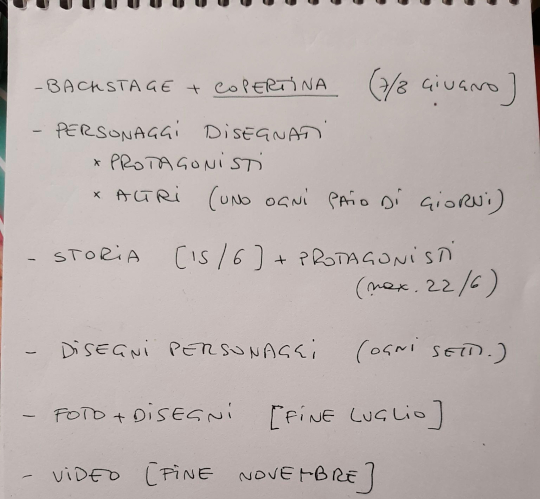 - BACKSTAGE + COPERTINA (7/8 GIUGNO]
- PERSONAGGI DISEGNATI
* PROTAGONISTI
* ALTRI (UNO OGNI PAIO DI GIORNI)
- STORIA [15/6] + PROTAGONISTI
(max. 22/6)
- DISEGNI PERSONAGGI (OGNI SETT.)
- FOTO + DISEGNI [FINE LUGLIO]
- VIDEO [FINE NOVEMBRE]